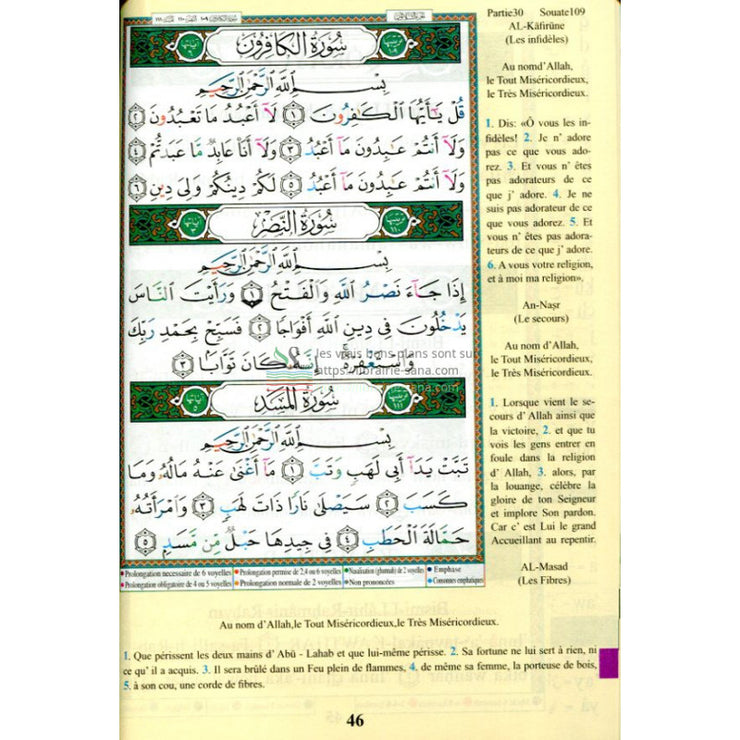 سورة الكافرون
بِسْمِ ٱللَّهِ ٱلرَّحْمَٰنِ ٱلرَّحِيمِ
قُلْ يَٰٓأَيُّهَا ٱلْكَٰفِرُونَ ١ لَآ أَعْبُدُ مَا تَعْبُدُونَ ٢
وَلَآ أَنتُمْ عَٰبِدُونَ مَآ أَعْبُدُ ٣ وَلَآ أَنَا۠ عَابِدٌ مَّا عَبَدتُّمْ ٤
وَلَآ أَنتُمْ عَٰبِدُونَ مَآ أَعْبُدُ ٥ لَكُمْ دِينُكُمْ وَلِىَ دِينِ ٦
سورة النصر
بِسْمِ ٱللَّهِ ٱلرَّحْمَٰنِ ٱلرَّحِيمِ
إِذَا جَآءَ نَصْرُ ٱللَّهِ وَٱلْفَتْحُ ١ وَرَأَيْتَ ٱلنَّاسَ
يَدْخُلُونَ فِى دِينِ ٱللَّهِ أَفْوَاجًا ٢ فَسَبِّحْ بِحَمْدِ رَبِّكَ
وَٱسْتَغْفِرْهُ إِنَّهُۥ كَانَ تَوَّابًۢا ٣
les vrais bons plans sont sur
https://librairie-sana.com
سورة المسد
بِسْمِ ٱللَّهِ ٱلرَّحْمَٰنِ ٱلرَّحِيمِ
تَبَّتْ يَدَآ أَبِى لَهَبٍ وَتَبَّ ١ مَآ أَغْنَىٰ عَنْهُ مَالُهُۥ وَمَا
كَسَبَ ٢ سَيَصْلَىٰ نَارًا ذَاتَ لَهَبٍ ٣ وَٱمْرَأَتُهُۥ
حَمَّالَةَ ٱلْحَطَبِ ٤ فِى جِيدِهَا حَبْلٌ مِّن مَّسَدٍۭ ٥
Prolongation necessaire de 6 voyelles Prolongation permise de 2,4 ou 6 voyelles Nasalisation (ghunnah) de 2 voyelles Emphase
Prolongation obligatoire de 4 ou 5 voyelles Prolongation normale de 2 voyelles Non prononcées Consonnes emphatiques
Partie30 Souate109
AL-Kâfirûne
(Les infidèles)
Au nomd'Allah,
le Tout Miséricordieux,
le Très Miséricordieux.
1. Dis: «Ô vous les in-
fidèles! 2. Je n' adore
pas ce que vous ado-
rez. 3. Et vous n' êtes
pas adorateurs de ce
que j' adore. 4. Je ne
suis pas adorateur de ce
que vous adorez. 5. Et
vous n' êtes pas adora-
teurs de ce que j' adore.
6. A vous votre religion,
et à moi ma religion».
An-Naṣr
(Le secours)
Au nom d'Allah,
le Tout Miséricordieux,
le Très Miséricordieux.
1. Lorsque vient le se-
cours d' Allah ainsi que
la victoire, 2. et que tu
vois les gens entrer en
foule dans la religion
d' Allah, 3. alors, par
la louange, célèbre la
gloire de ton Seigneur
et implore Son pardon.
Car c' est Lui le grand
Accueillant au repentir.
AL-Masad
(Les Fibres)
Au nom d'Allah,le Tout Miséricordieux,le Très Miséricordieux.
1. Que périssent les deux mains d' Abû - Lahab et que lui-même périsse. 2. Sa fortune ne lui sert à rien, ni
ce qu' il a acquis. 3. Il sera brûlé dans un Feu plein de flammes, 4. de même sa femme, la porteuse de bois,
5. à son cou, une corde de fibres.
46